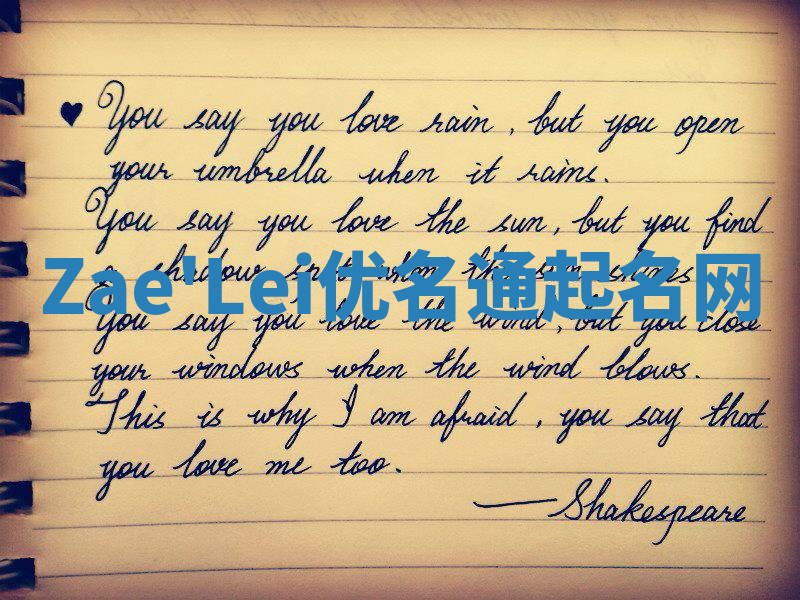 You say you love rain, but you open
your umbrella when it rains.
You say you love the sun, but you find
a shadow spot when the sun shines
Zae'Lei优名通起名网
You say you love the wind, but you close
your windows when the wind blows.
This is why I am afraid, you say that
you love me too.
—Shakespeare